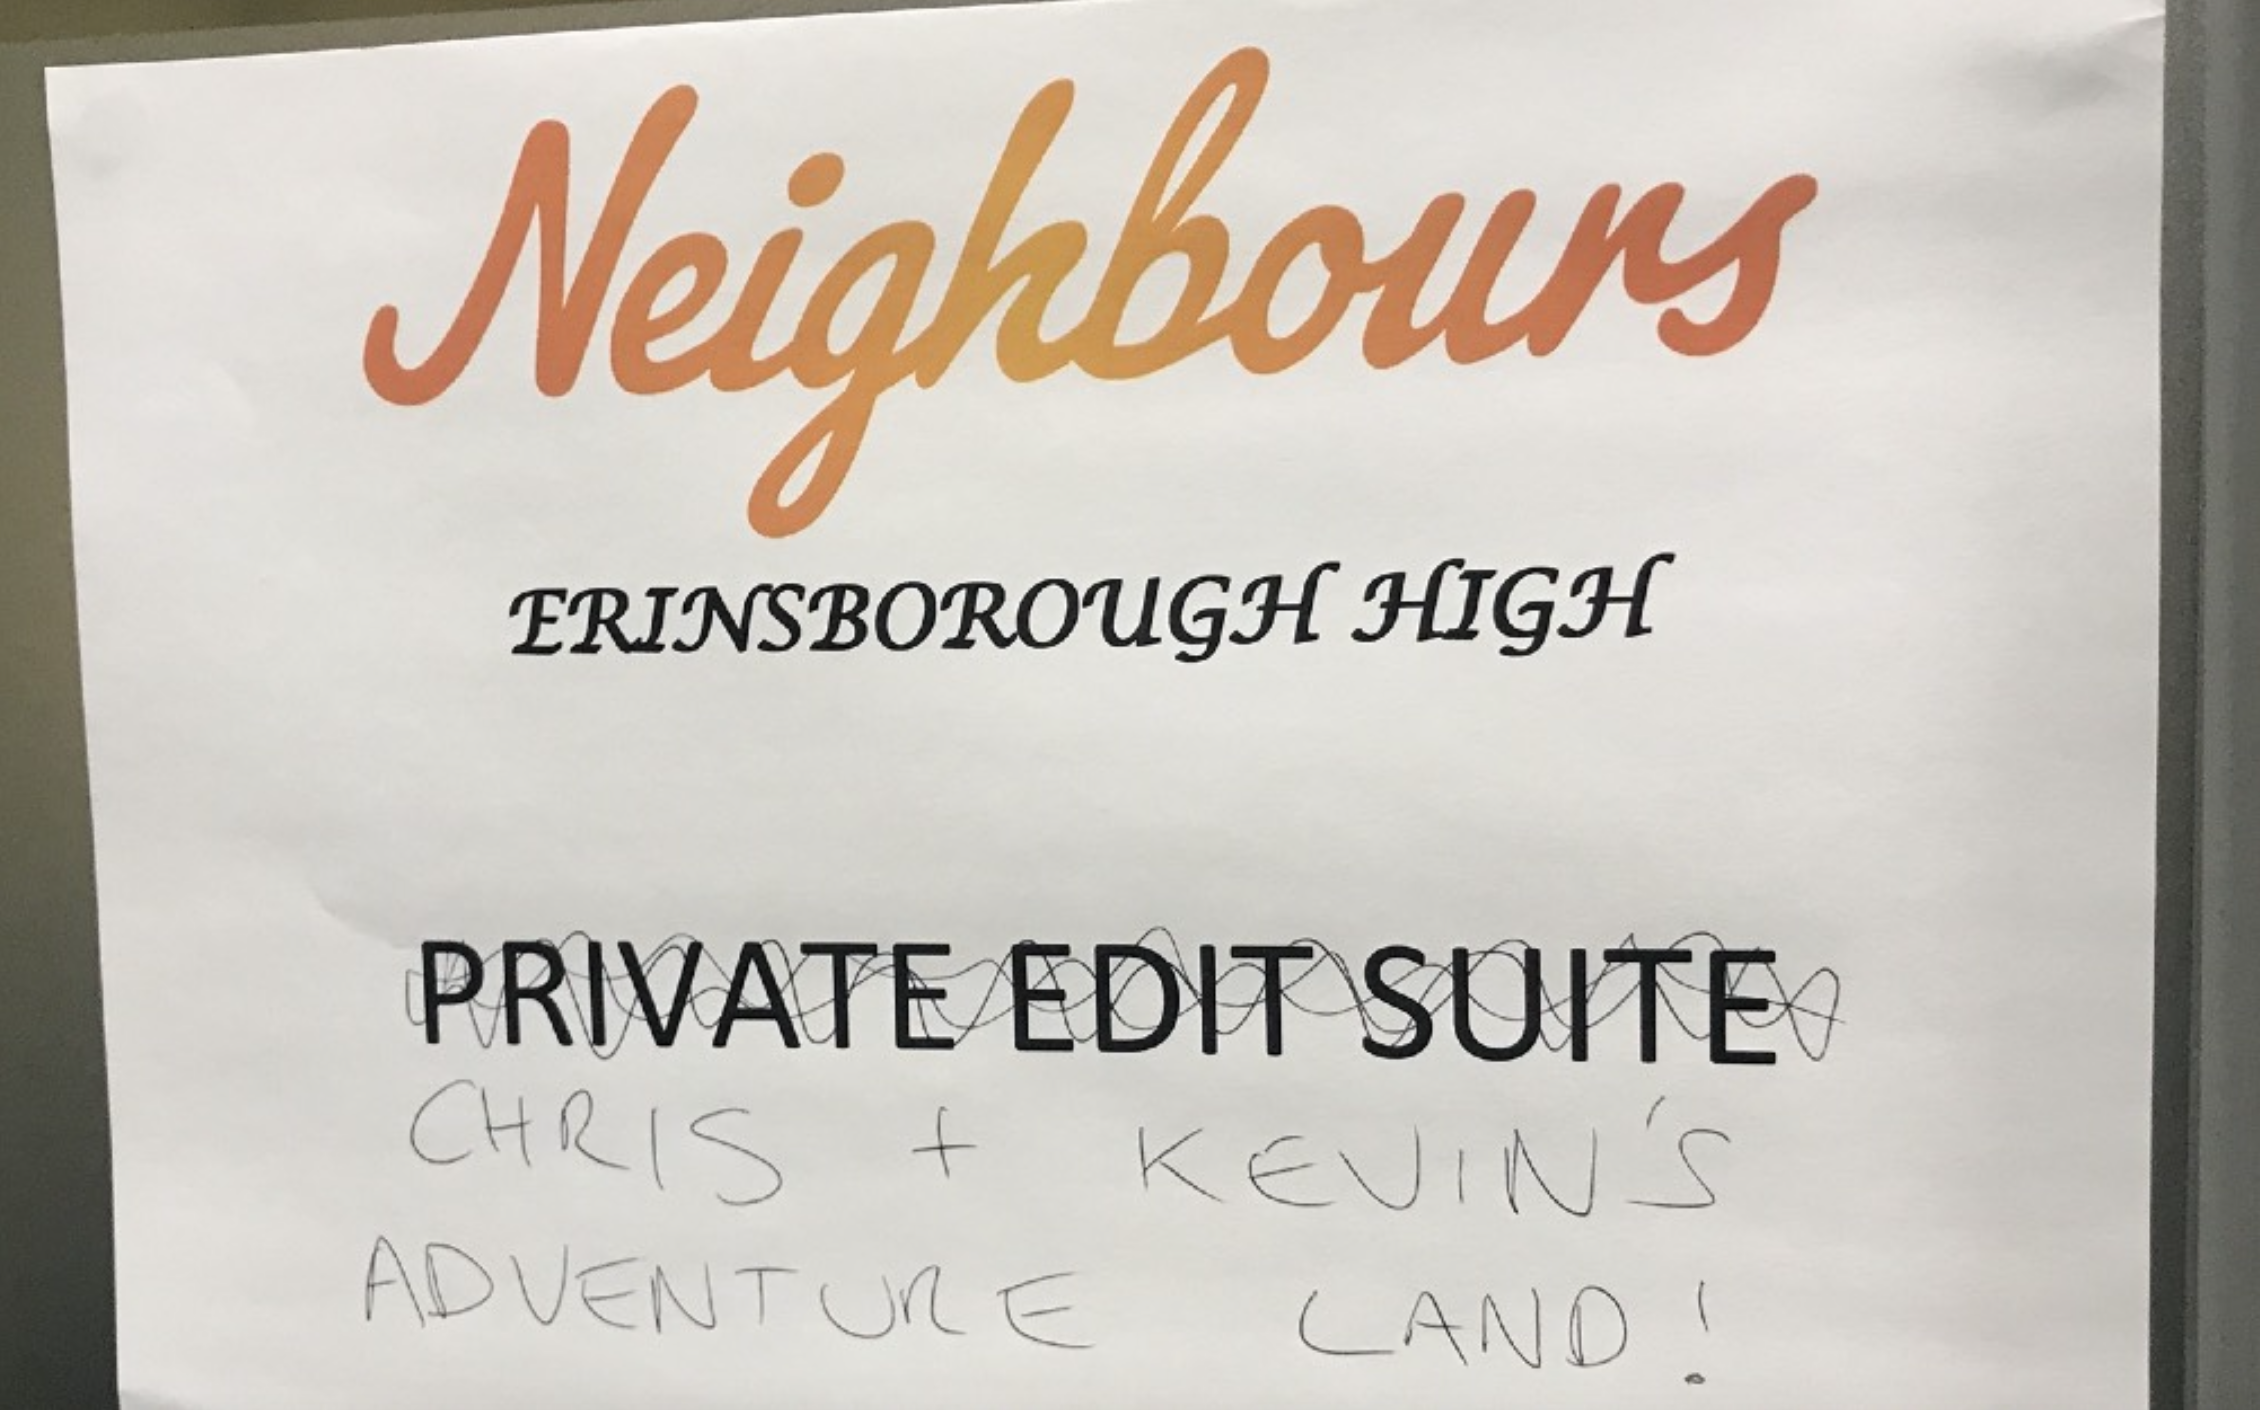 Neighbours
ERINSBOROUGH HIGH
PRIVATE EDIT SUITE
CHRIS + KEVIN'S
ADVENTURE LAND!